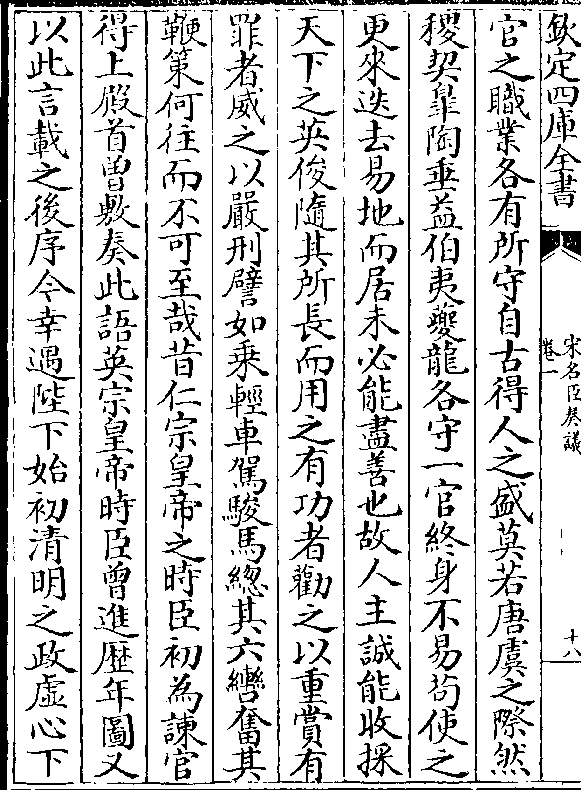 欽定四庫全書
宋名臣奏議
卷一
十八
官之職業各有所守自古得人之盛莫若唐虞之際然
稷契臯陶垂益伯夷夔龍各守一官終身不易茍使之
更來迭去易地而居未必能盡善也故人主誠能收採
天下之英俊隨其所長而用之有功者勸之以重賞有
罪者威之以嚴刑譬如乗輕車駕駿馬總其六轡奮其
鞭策何往而不可至哉昔仁宗皇帝之時臣初為諫官
得上殿首曽敷奏此語英宗皇帝時臣曽進歴年圖又
以此言載之後序今幸遇陛下始初清明之政虚心下